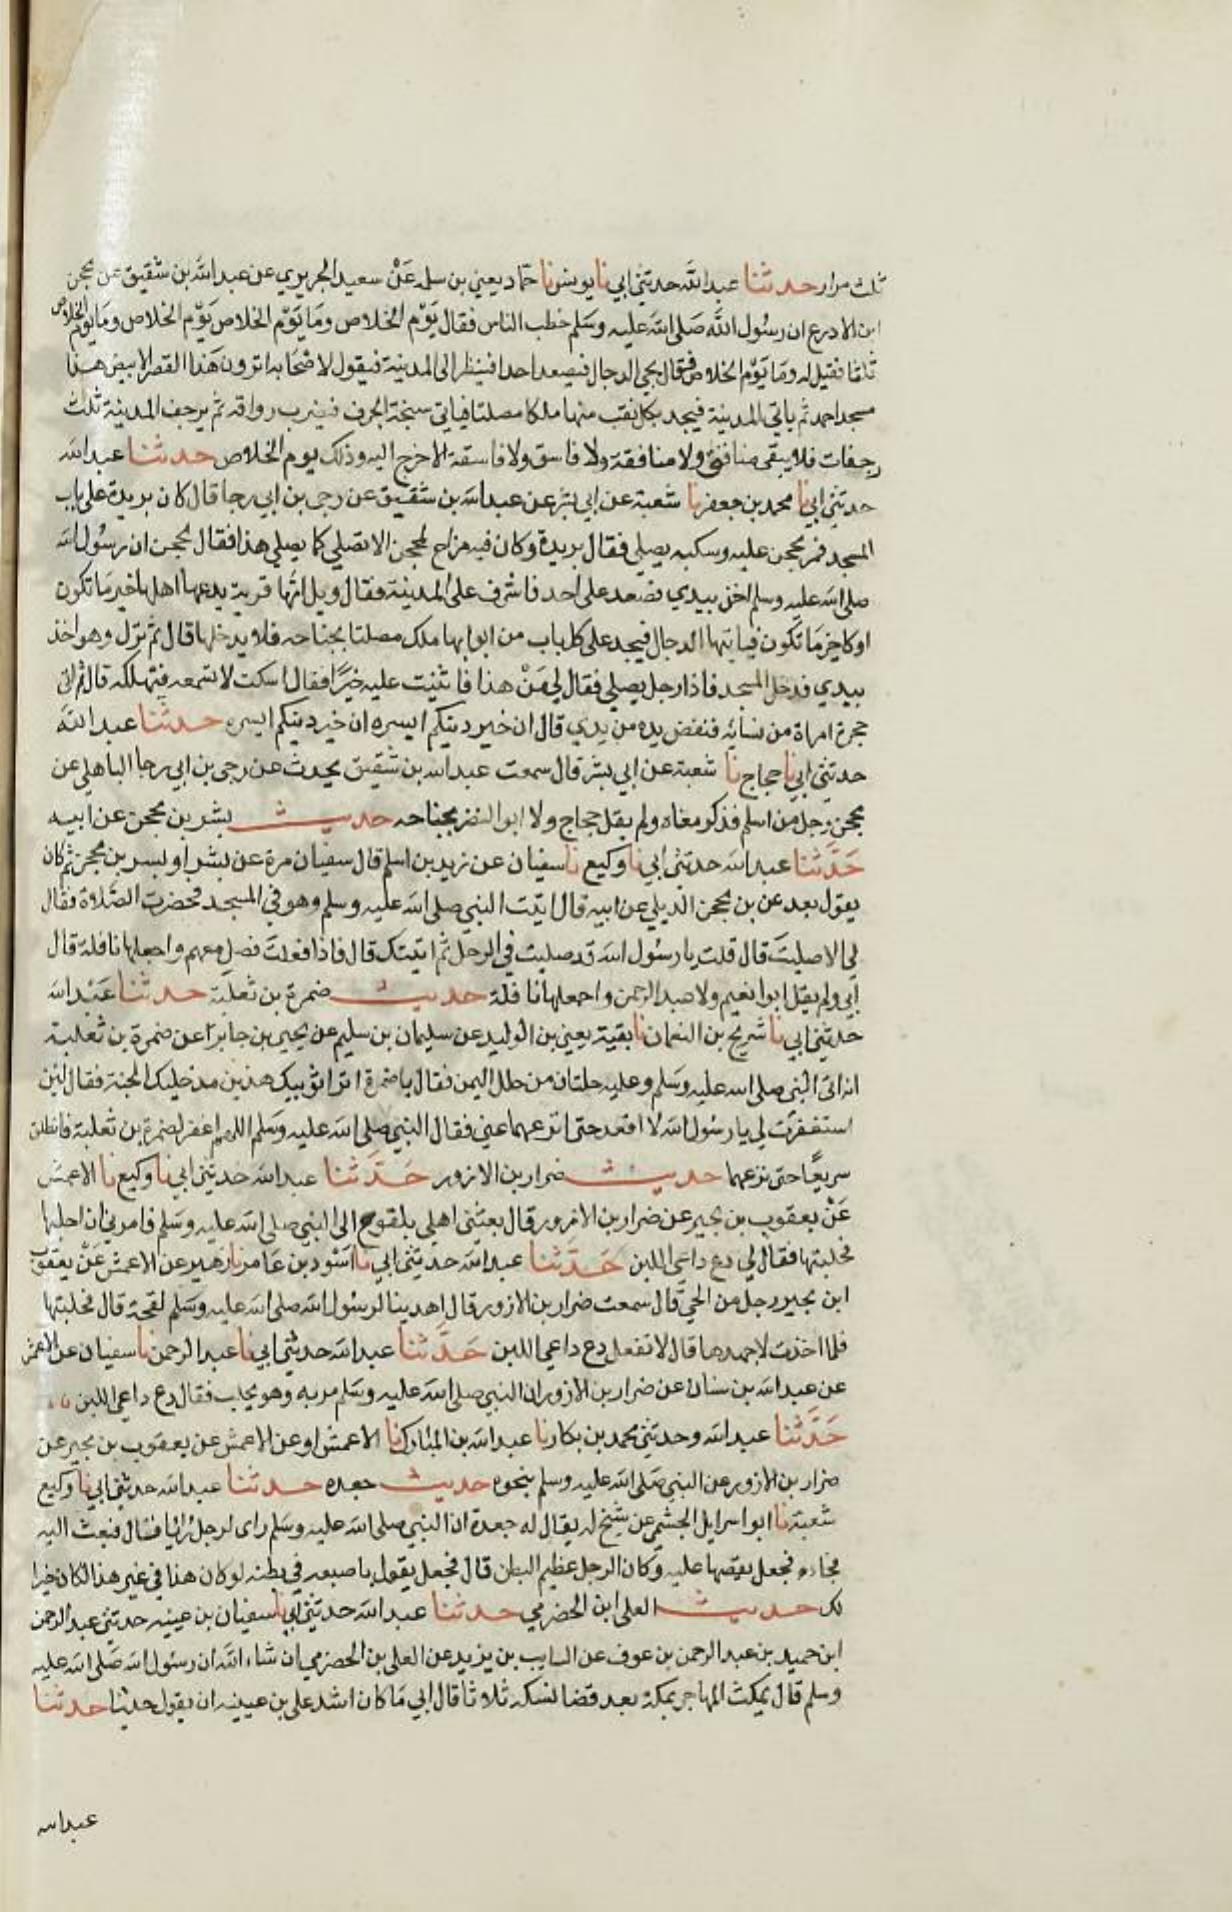 ثلث مرار حدثنا عبد الله حدثني ابي نا يونس نا حماد يعني بن سلمه عن سعيد الجريري عن عبد الله بن شقيق عن محجن
ابن الادرع ان رسول الله صلى الله عليه وسلم خطب الناس فقال يوم الخلاص وما يوم الخلاص يوم الخلاص وما يوم الخلاص
ثلاثا فقيل له وما يوم الخلاص فقال يجي الدجال فيصعد احدا فينظر الى المدينة فيقول لاصحابه اترون هذا القصر الابيض هذا
مسجد احمد ثم ياتي المدينة فيجد بكل نقب منها ملكا مصلتا فياتي سبخة الجرف فيضرب رواقه ثم يرجف المدينة ثلث
رجفات فلا يبقى منافق ولا منافقة ولا فاسق ولا فاسقة الا خرج اليه وذلك يوم الخلاص حدثنا عبد الله
حدثني ابي نا محمد بن جعفر نا شعبة عن ابي بشر عن عبد الله بن شقيق عن رجى بن ابي رجا قال كان بريدة على باب
المسجد فمر محجن عليه وسكبه يصلي فقال بريدة وكان فيه مزاح لمحجن الا تصلي كما يصلي هذا فقال محجن ان رسول الله
صلى الله عليه وسلم اخذ بيدي فصعد على احد فاشرف على المدينة فقال ويل امها قرية يدعها اهلها خير ما تكون
او كاخير ما تكون فياتيها الدجال فيجد على كل باب من ابوابها ملك مصلتا بجناحه فلا يدخلها قال ثم نزل وهو اخذ
بيدي فدخل المسجد فاذا رجل يصلي فقال لي من هذا فاثنيت عليه خيرا فقال اسكت لا تسمعه فتهلكه قال ثم اتى
حجرة امراة من نسائه فنفض يده من يدي قال ان خير دينكم ايسره ان خير دينكم ايسره حدثنا عبد الله
حدثني ابي نا حجاج نا شعبة عن ابي بشر قال سمعت عبد الله بن شقيق يحدث عن رجى بن ابي رجا الباهلي عن
محجن رجل من اسلم فذكر معناه ولم يقل حجاج ولا ابو النضر بجناحه حديث بشر بن محجن عن ابيه
حدثنا عبد الله حدثني ابي نا وكيع نا سفيان عن زيد بن اسلم قال سفيان مرة عن بشر او بسر بن محجن ثم كان
يقول بعد عن بن محجن الديلي عن ابيه قال اتيت النبي صلى الله عليه وسلم وهو في المسجد فحضرت الصلاة فقال
لي الا صليت قال قلت يا رسول الله قد صليت في الرحل ثم اتيتك قال فاذا فعلت فصل معهم واجعلها نافلة قال
ابي ولم يقل ابو نعيم ولا عبد الرحمن واجعلها نافلة حديث ضمرة بن ثعلبة حدثنا عبد الله
حدثني ابي نا شريح بن النعمان نا بقية يعني بن الوليد عن سليمان بن سليم عن يحيى بن جابر عن ضمرة بن ثعلبة
انه اتى النبي صلى الله عليه وسلم وعليه حلتان من حلل اليمن فقال يا ضمرة اترا ثوبيك هذين مدخليك الجنة فقال لئن
استغفرت لي يا رسول الله لا اقعد حتى انزعهما عني فقال النبي صلى الله عليه وسلم اللهم اغفر لضمرة بن ثعلبة فانطلق
سريعا حتى نزعهما حديث ضرار بن الازور حدثنا عبد الله حدثني ابي نا وكيع نا الاعمش
عن يعقوب بن بحير عن ضرار بن الازور قال بعثني اهلي بلقوح الى النبي صلى الله عليه وسلم فامرني ان احلبها
فحلبتها فقال لي دع داعي اللبن حدثنا عبد الله حدثني ابي نا اسود بن عامر نا زهير عن الاعمش عن يعقوب
ابن بحير رجل من الحي قال سمعت ضرار بن الازور قال اهدينا لرسول الله صلى الله عليه وسلم لقحة قال فحلبتها
فلما اخذت لاجهدها قال لا تفعل دع داعي اللبن حدثنا عبد الله حدثني ابي نا عبد الرحمن نا سفيان عن الاعمش
عن عبد الله بن سنان عن ضرار بن الازور ان النبي صلى الله عليه وسلم مر به وهو يحلب فقال دع داعي اللبن
حدثنا عبد الله وحدثني محمد بن بكار نا عبد الله بن المبارك نا الاعمش او عن الاعمش عن يعقوب بن بحير عن
ضرار بن الازور عن النبي صلى الله عليه وسلم بنحوه حديث جعده حدثنا عبد الله حدثني ابي نا وكيع
شعبة نا ابو اسرايل الجشمي عن شيخ له يقال له جعدة ان النبي صلى الله عليه وسلم راى لرجل رؤيا فقال فبعث اليه
فجاءه فجعل يقصها عليه وكان الرجل عظيم البطن قال فجعل يقول باصبعه في بطنه لو كان هذا في غير هذا لكان خيرا
لك حديث العلى ابن الحضرمي حدثنا عبد الله حدثني ابي نا سفيان بن عيينه حدثني عبد الرحمن
ابن حميد بن عبد الرحمن بن عوف عن السايب بن يزيد عن العلى بن الحضرمي ان شاء الله ان رسول الله صلى الله عليه
وسلم قال يمكث المهاجر بمكة بعد قضا نسكه ثلاثا قال ابي ما كان اشد على بن عيينه ان يقول حدثنا حدثنا
عبد الله